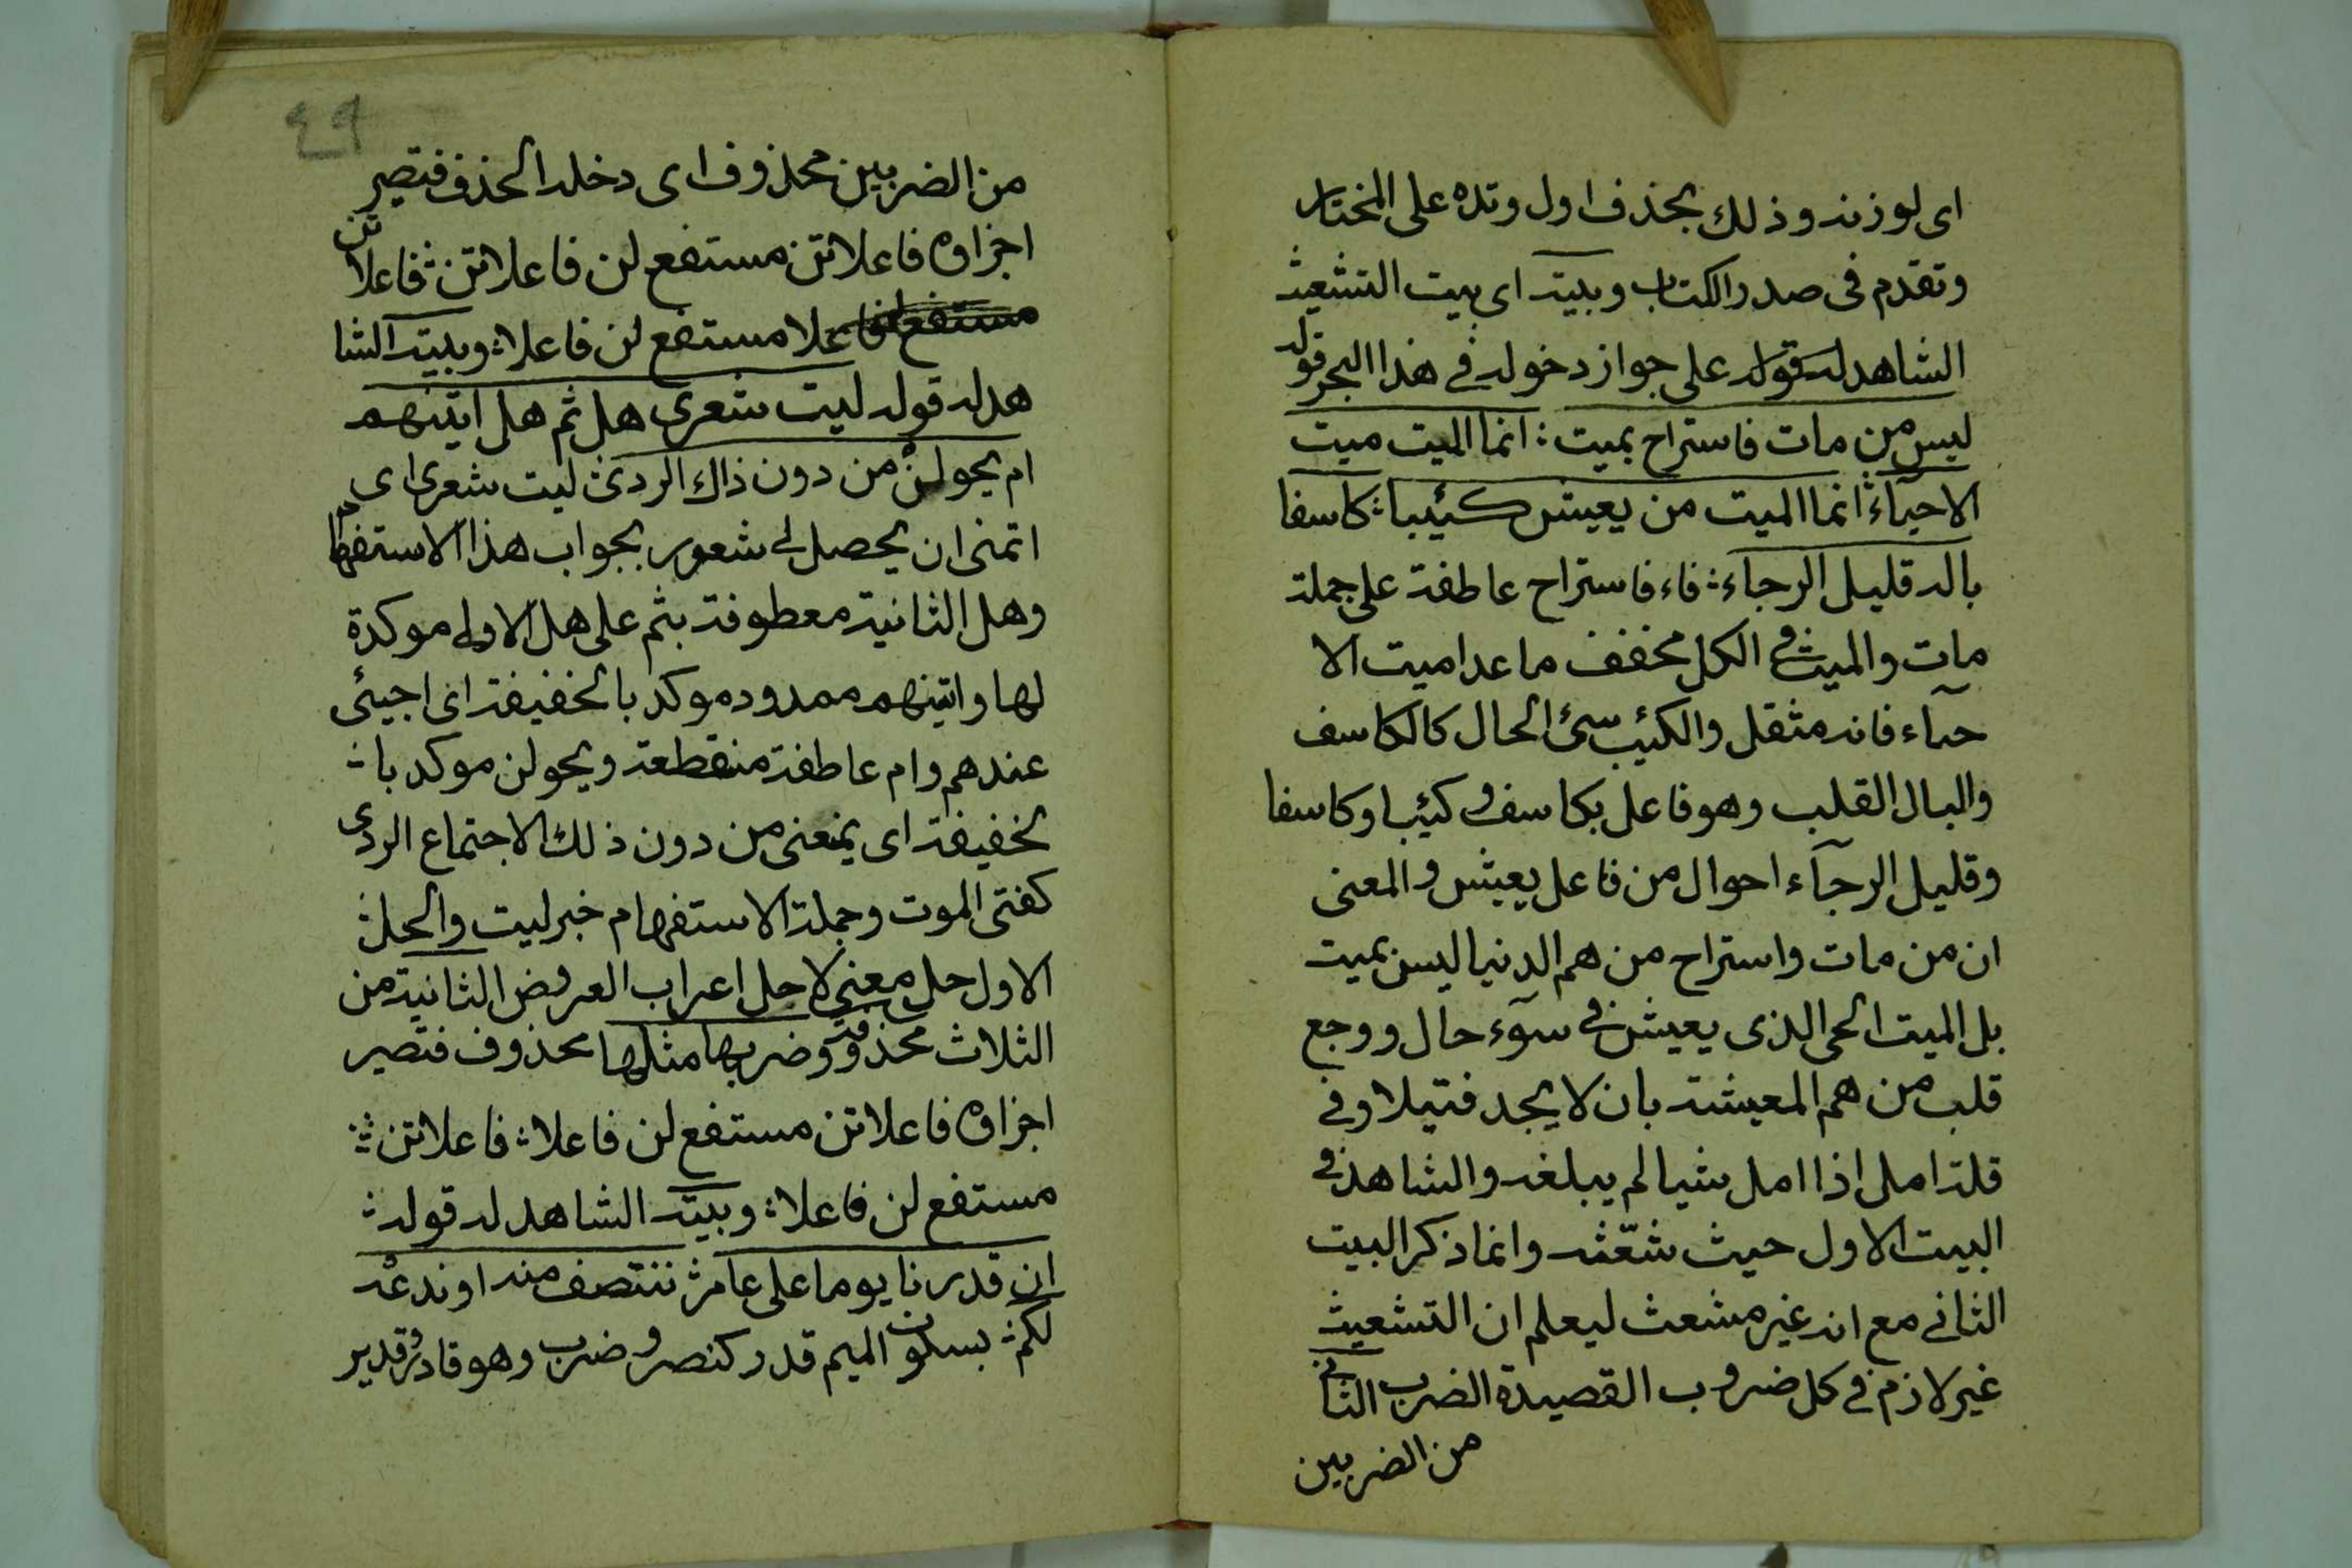 اى لوزنه وذلك بحذف اول وتده على المختار
وتقدم فى صدر الكتاب وبيته اى بيت التشعيث
الشاهد له على جواز دخوله فى هذا البحر قوله
ليس من مات فاستراح بميت ؛ انما الميت ميت
الاحيآء ؛ انما الميت من يعيش كئيبا ؛ كاسفا
باله قليل الرجاء ؛ فاء فاستراح عاطفة على جملة
مات والميت فى الكل مخفف ما عدا ميت الا
حيآء فانه مثقل والكئيب سئ الحال كالكاسف
والبال القلب وهو فاعل بكاسف و كئيبا وكاسفا
وقليل الرجآء احوال من فاعل يعيش والمعنى
ان من مات واستراح من هم الدنيا ليس بميت
بل الميت الحى الذى يعيش فى سوٓء حال ووجع
قلب من هم المعيشة بان لا يجد فتيلا وفى
قلة امل اذا امل شيا لم يبلغه والشاهد فى
البيت الاول حيث شعّثه وانما ذكر البيت
الثانى مع انه غير مشعث ليعلم ان التشعيث
غير لازم فى كل ضروب القصيدة الضرب الثانى
من الضربين
٤٩
من الضربين محذوف اى دخله الحذف فتصير
اجزاوه فاعلاتن مستفع لن فاعلاتن ؛ فاعلاتن
مستفع لن فاعلا ؛ وبيته الشا
هد له قوله ليت شعرى هل ثم هل اتينهم
ام يحولنْ من دون ذاك الردى ؛ ليت شعرى اى
اتمنى ان يحصل لى شعور بجواب هذا الاستفهام
وهل الثانية معطوفة بثم على هل الاولى موكدة
لها واتينهم ممدود موكد بالخفيفة اى اجيئى
عندهم وام عاطفة منقطعة ويحولن موكد با ؛
لخفيفة اى يمنعنى من دون ذلك الاجتماع الردى
كفتى الموت وجملة الاستفهام خبر ليت والحل ؛
الاول حل معنى لا حل اعراب العروض الثانية من
الثلاث محذوفة وضربها مثلها محذوف فتصير
اجزاوه فاعلاتن مستفع لن فاعلا ؛ فاعلاتن ؛
مستفع لن فاعلا ؛ وبيته الشاهد له قوله ؛
ان قدرنا يوما على عامر ؛ ننتصف منه او ندعْه
لكم ؛ بسكون الميم قدر كنصر وضرب وهو قادر وقدير